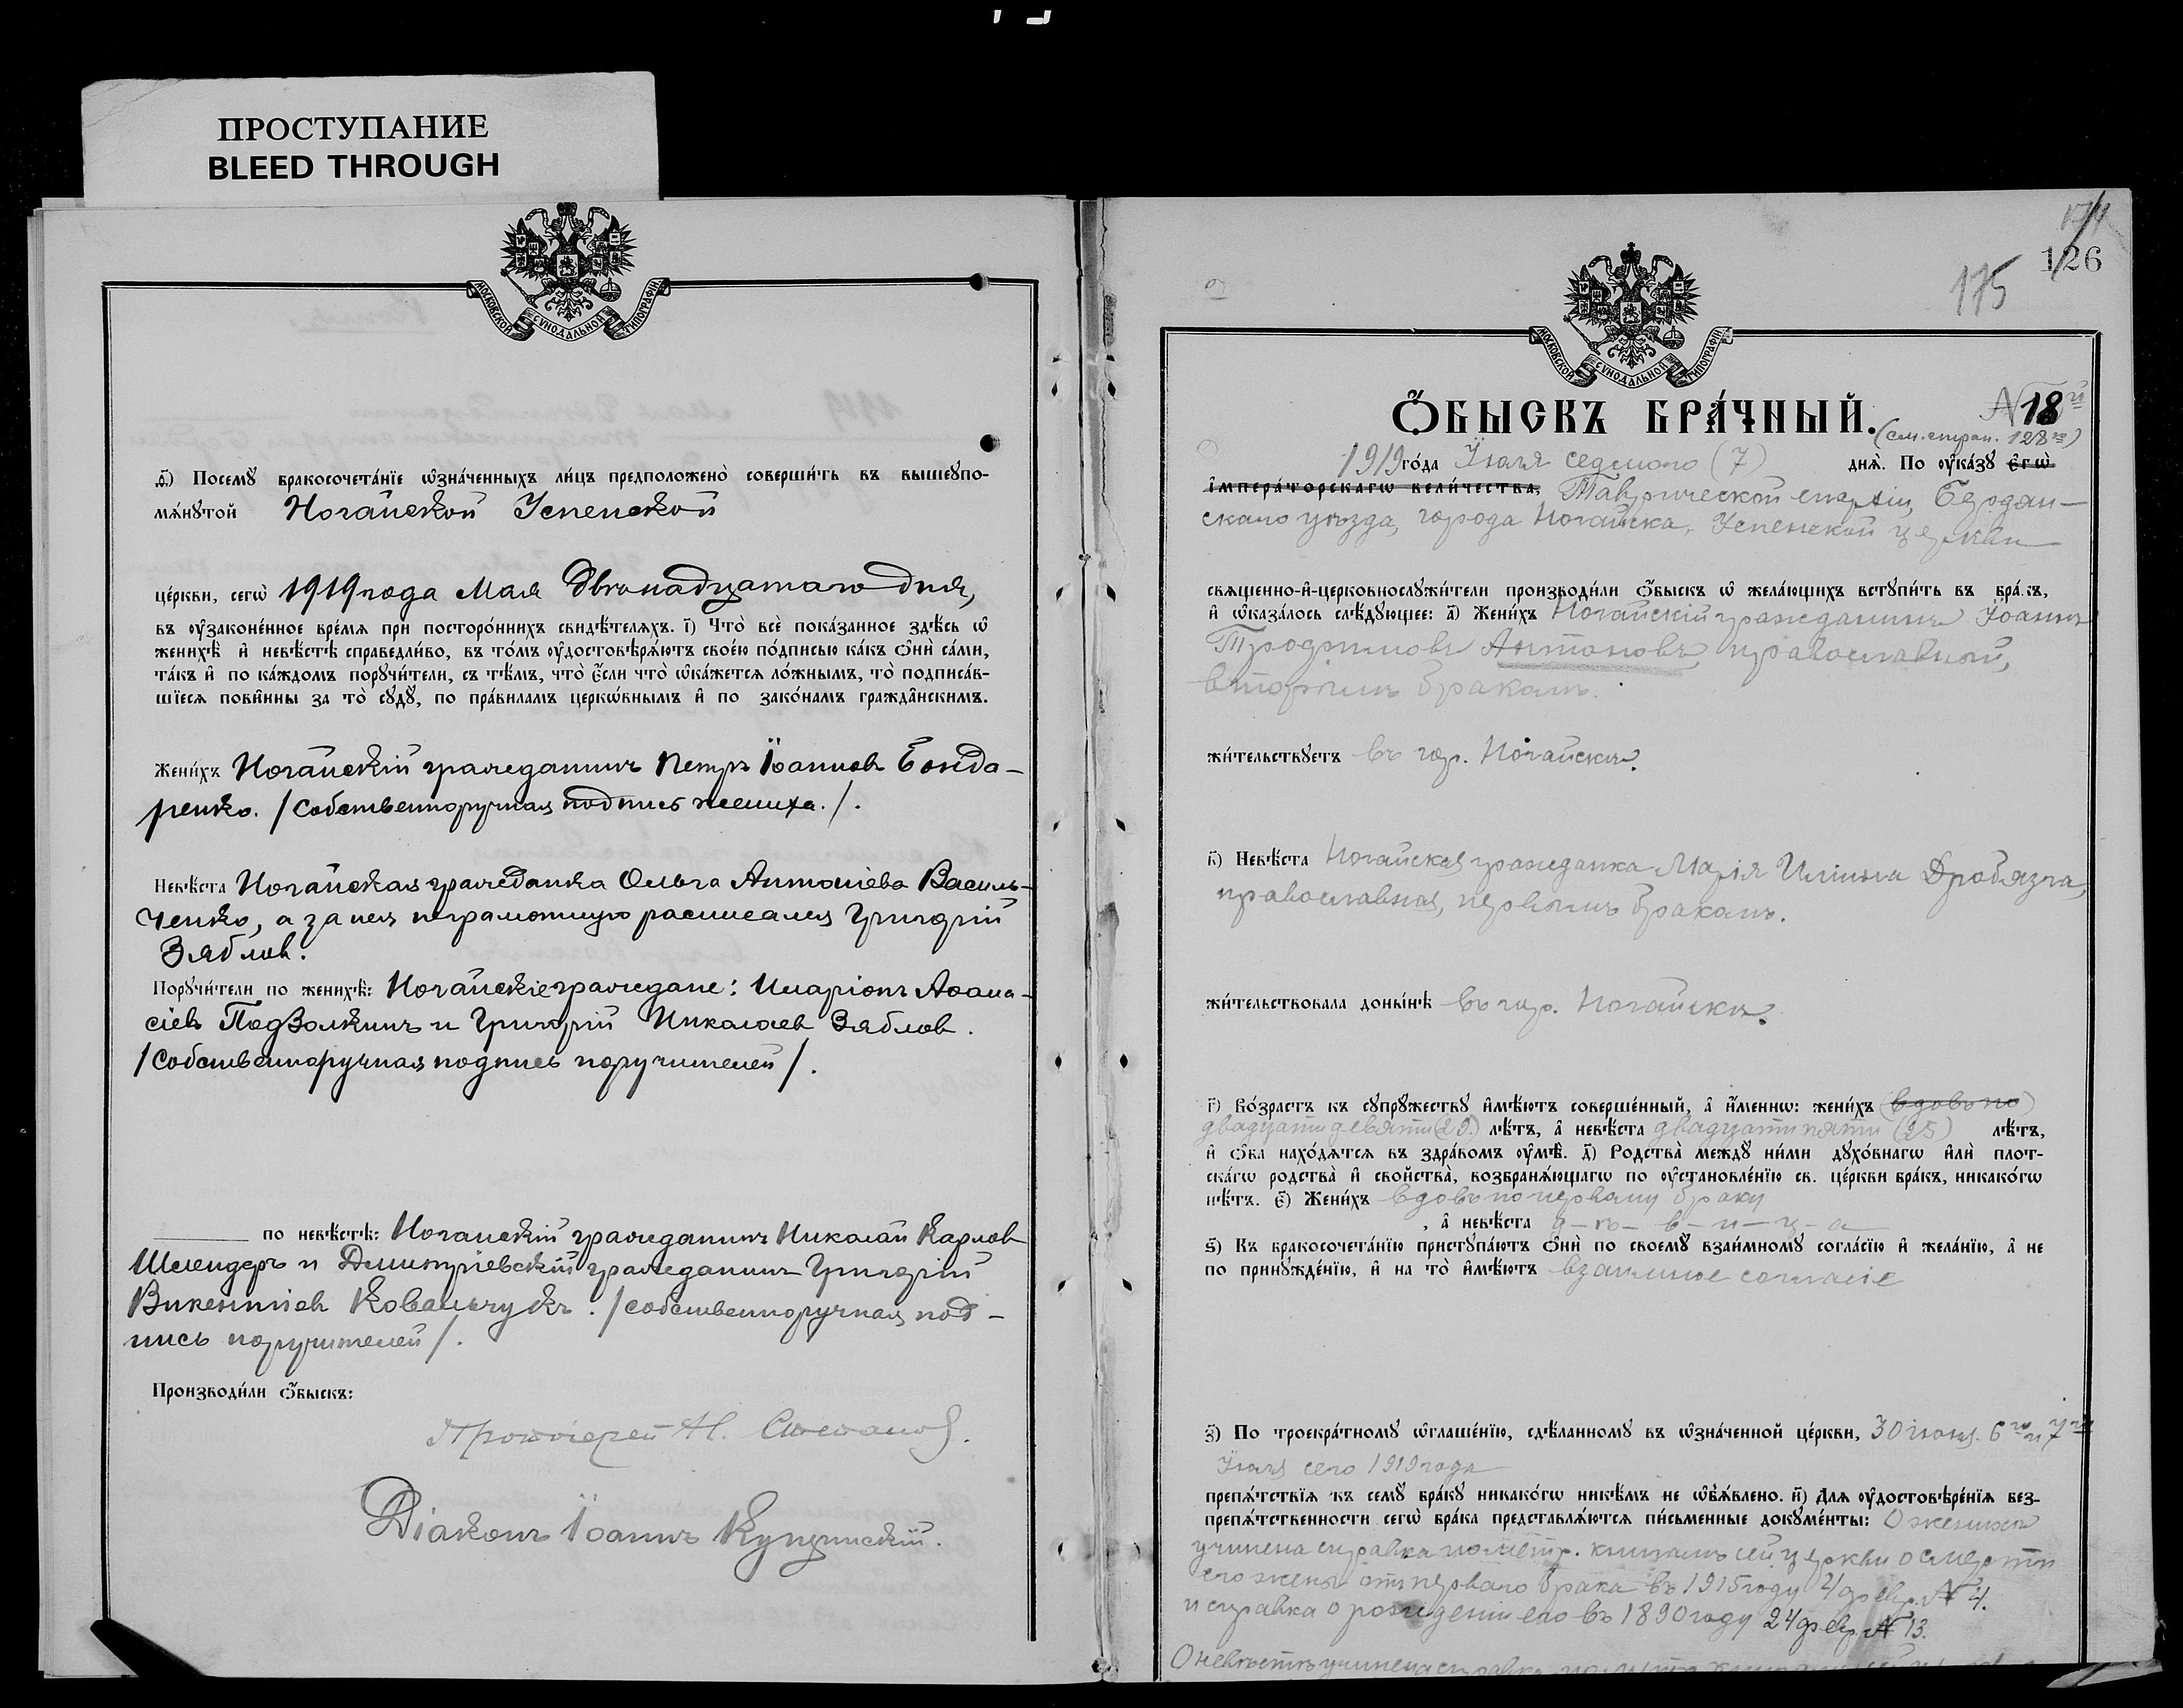 ПРОСТУПАНИЕ
BLEED THROUGH
МОСКОВСКОЙ СѴНОДАЛЬНОЙ ТИПОГРАФІИ
ѳ҃) Посемꙋ̀ бракосочета́нїе ѡ҆зна́ченныхъ ли́цъ предположено̀ соверши́ть въ вышеꙋпо-
мѧ́нꙋтой Ногайской Успенской
це́ркви, сегѡ̀ 1919 года Мая двѣнадцатаго дня,
въ ᲂу҆зако́ненное вре́мѧ при посторо́ннихъ свидѣ́телѧхъ. і҃) Что̀ всѐ пока́занное здѣ́сь ѡ҆
женихѣ̀ и҆ невѣ́стѣ справедли́во, въ то́мъ ᲂу҆достовѣрѧ́ютъ свое́ю по́дписью ка́къ ѻ҆нѝ са́ми,
та́къ и҆ по ка́ждомъ порꙋчи́тели, съ тѣ́мъ, что̀ є҆́сли что̀ ѡ҆ка́жетсѧ ло́жнымъ, то̀ подписа́в-
шїесѧ пови́нны за то̀ сꙋдꙋ̀, по пра́виламъ церко́внымъ и҆ по зако́намъ гражда́нскимъ.
Жени́хъ Ногайскій гражданинъ Петръ Іоанновъ Бонда-
ренко. /Собственноручная подпись жениха./.
Невѣ́ста Ногайская гражданка Ольга Антоніева Василь-
ченко, а за нея неграмотную расписался Григорій
Зябловъ.
Порꙋчи́тели по женихѣ̀: Ногайскіе граждане: Иларіонъ Аѳана-
сіевъ Подволкинъ и Григорій Николаевъ Зябловъ.
/Собственноручная подпись поручителей/.
по невѣ́стѣ: Ногайскій гражданинъ Николай Карловъ
Шлендеръ и Димитріевскій гражданинъ Григорій
Викентіевъ Ковальчукъ. /собственноручная под-
пись поручителей/.
Производи́ли ѻ҆́быскъ:
Протоіерей Н.
Діаконъ Іоаннъ Купчинскій.
174
126
175
МОСКОВСКОЙ СѴНОДАЛЬНОЙ ТИПОГРАФІИ
Ѻ҆́БЫСКЪ БРА́ЧНЫЙ.
№ 18й
(см. стран. 128ю)
1919 го́да Іюля седьмого (7) днѧ̀. По ᲂу҆ка́зꙋ є҆гѡ̀
і҆мпера́торскагѡ вели́чества, Таврической епархіи, Бердян-
скаго уѣзда, города Ногайска, Успенской церкви
свѧще́нно-и҆-церковнослꙋжи́тели производи́ли ѻ҆́быскъ ѡ҆ жела́ющихъ встꙋпи́ть въ бра́къ,
и҆ ѡ҆каза́лось слѣ́дꙋющее: а҃) Жени́хъ Ногайскій гражданинъ Іоаннъ
Трофимовъ Антоновъ, православный,
вторымъ бракомъ.
жи́тельствꙋетъ въ гор. Ногайскѣ.
в҃) Невѣ́ста Ногайская гражданка Марія Иліина Дробязга,
православная, первымъ бракомъ.
жи́тельствовала доны́нѣ въ гор. Ногайскѣ.
г҃) Во́зрастъ къ сꙋпрꙋ́жествꙋ и҆мѣ́ютъ соверше́нный, а҆ и҆́меннѡ: жени́хъ (вдовъ по)
двадцати девяти (29.) лѣ́тъ, а҆ невѣ́ста двадцати пяти (25) лѣ́тъ,
и҆ ѻ҆́ба нахо́дѧтсѧ въ здра́вомъ ᲂу҆мѣ̀. д҃) Родства̀ междꙋ̀ ни́ми дꙋхо́внагѡ и҆лѝ плот-
ска́гѡ родства̀ и҆ свойства̀, возбранѧ́ющагѡ по ᲂу҆становле́нїю св. це́ркви бра́къ, никако́гѡ
нѣ́тъ. є҃) Жени́хъ вдовъ по первому браку
, а҆ невѣ́ста д-ѣ-в-и-ц-а
ѕ҃) Къ бракосочета́нїю пристꙋпа́ютъ ѻ҆нѝ по своемꙋ̀ взаи́мномꙋ согла́сїю и҆ жела́нїю, а҆ не
по принꙋжде́нїю, и҆ на то̀ и҆мѣ́ютъ взаимное согласіе
з҃) По троекра́тномꙋ ѡ҆глаше́нїю, сдѣ́ланномꙋ въ ѡ҆зна́ченной це́ркви, 30 іюня. 6го и 7го
Іюля сего 1919 года
препѧ́тствїѧ къ семꙋ̀ бра́кꙋ никако́гѡ никѣ́мъ не ѡ҆б̾ѧ́влено. и҃) Длѧ ᲂу҆достовѣре́нїѧ без-
препѧ́тственности сегѡ̀ бра́ка представлѧ́ютсѧ пи́сьменные докꙋме́нты: О женихѣ
учинена справка по метр. книгамъ сей церкви о смерти
его жены отъ перваго брака въ 1915 году 4 февр. № 4.
и справка о рожденіи его въ 1890 году 24 февр. № 13.
О невѣстѣ учинена справка